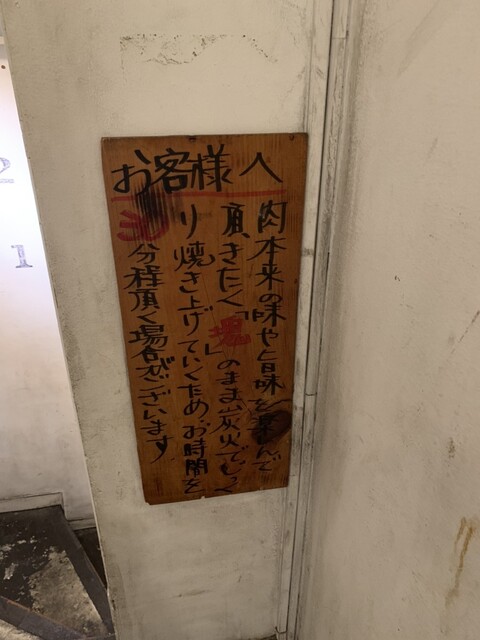 お客様へ
肉本来の味や旨味を楽しんで
頂きたく「塊」のまま炭火でじっく
り焼き上げていくため、お時間を
分程頂く場合がございます
2
1